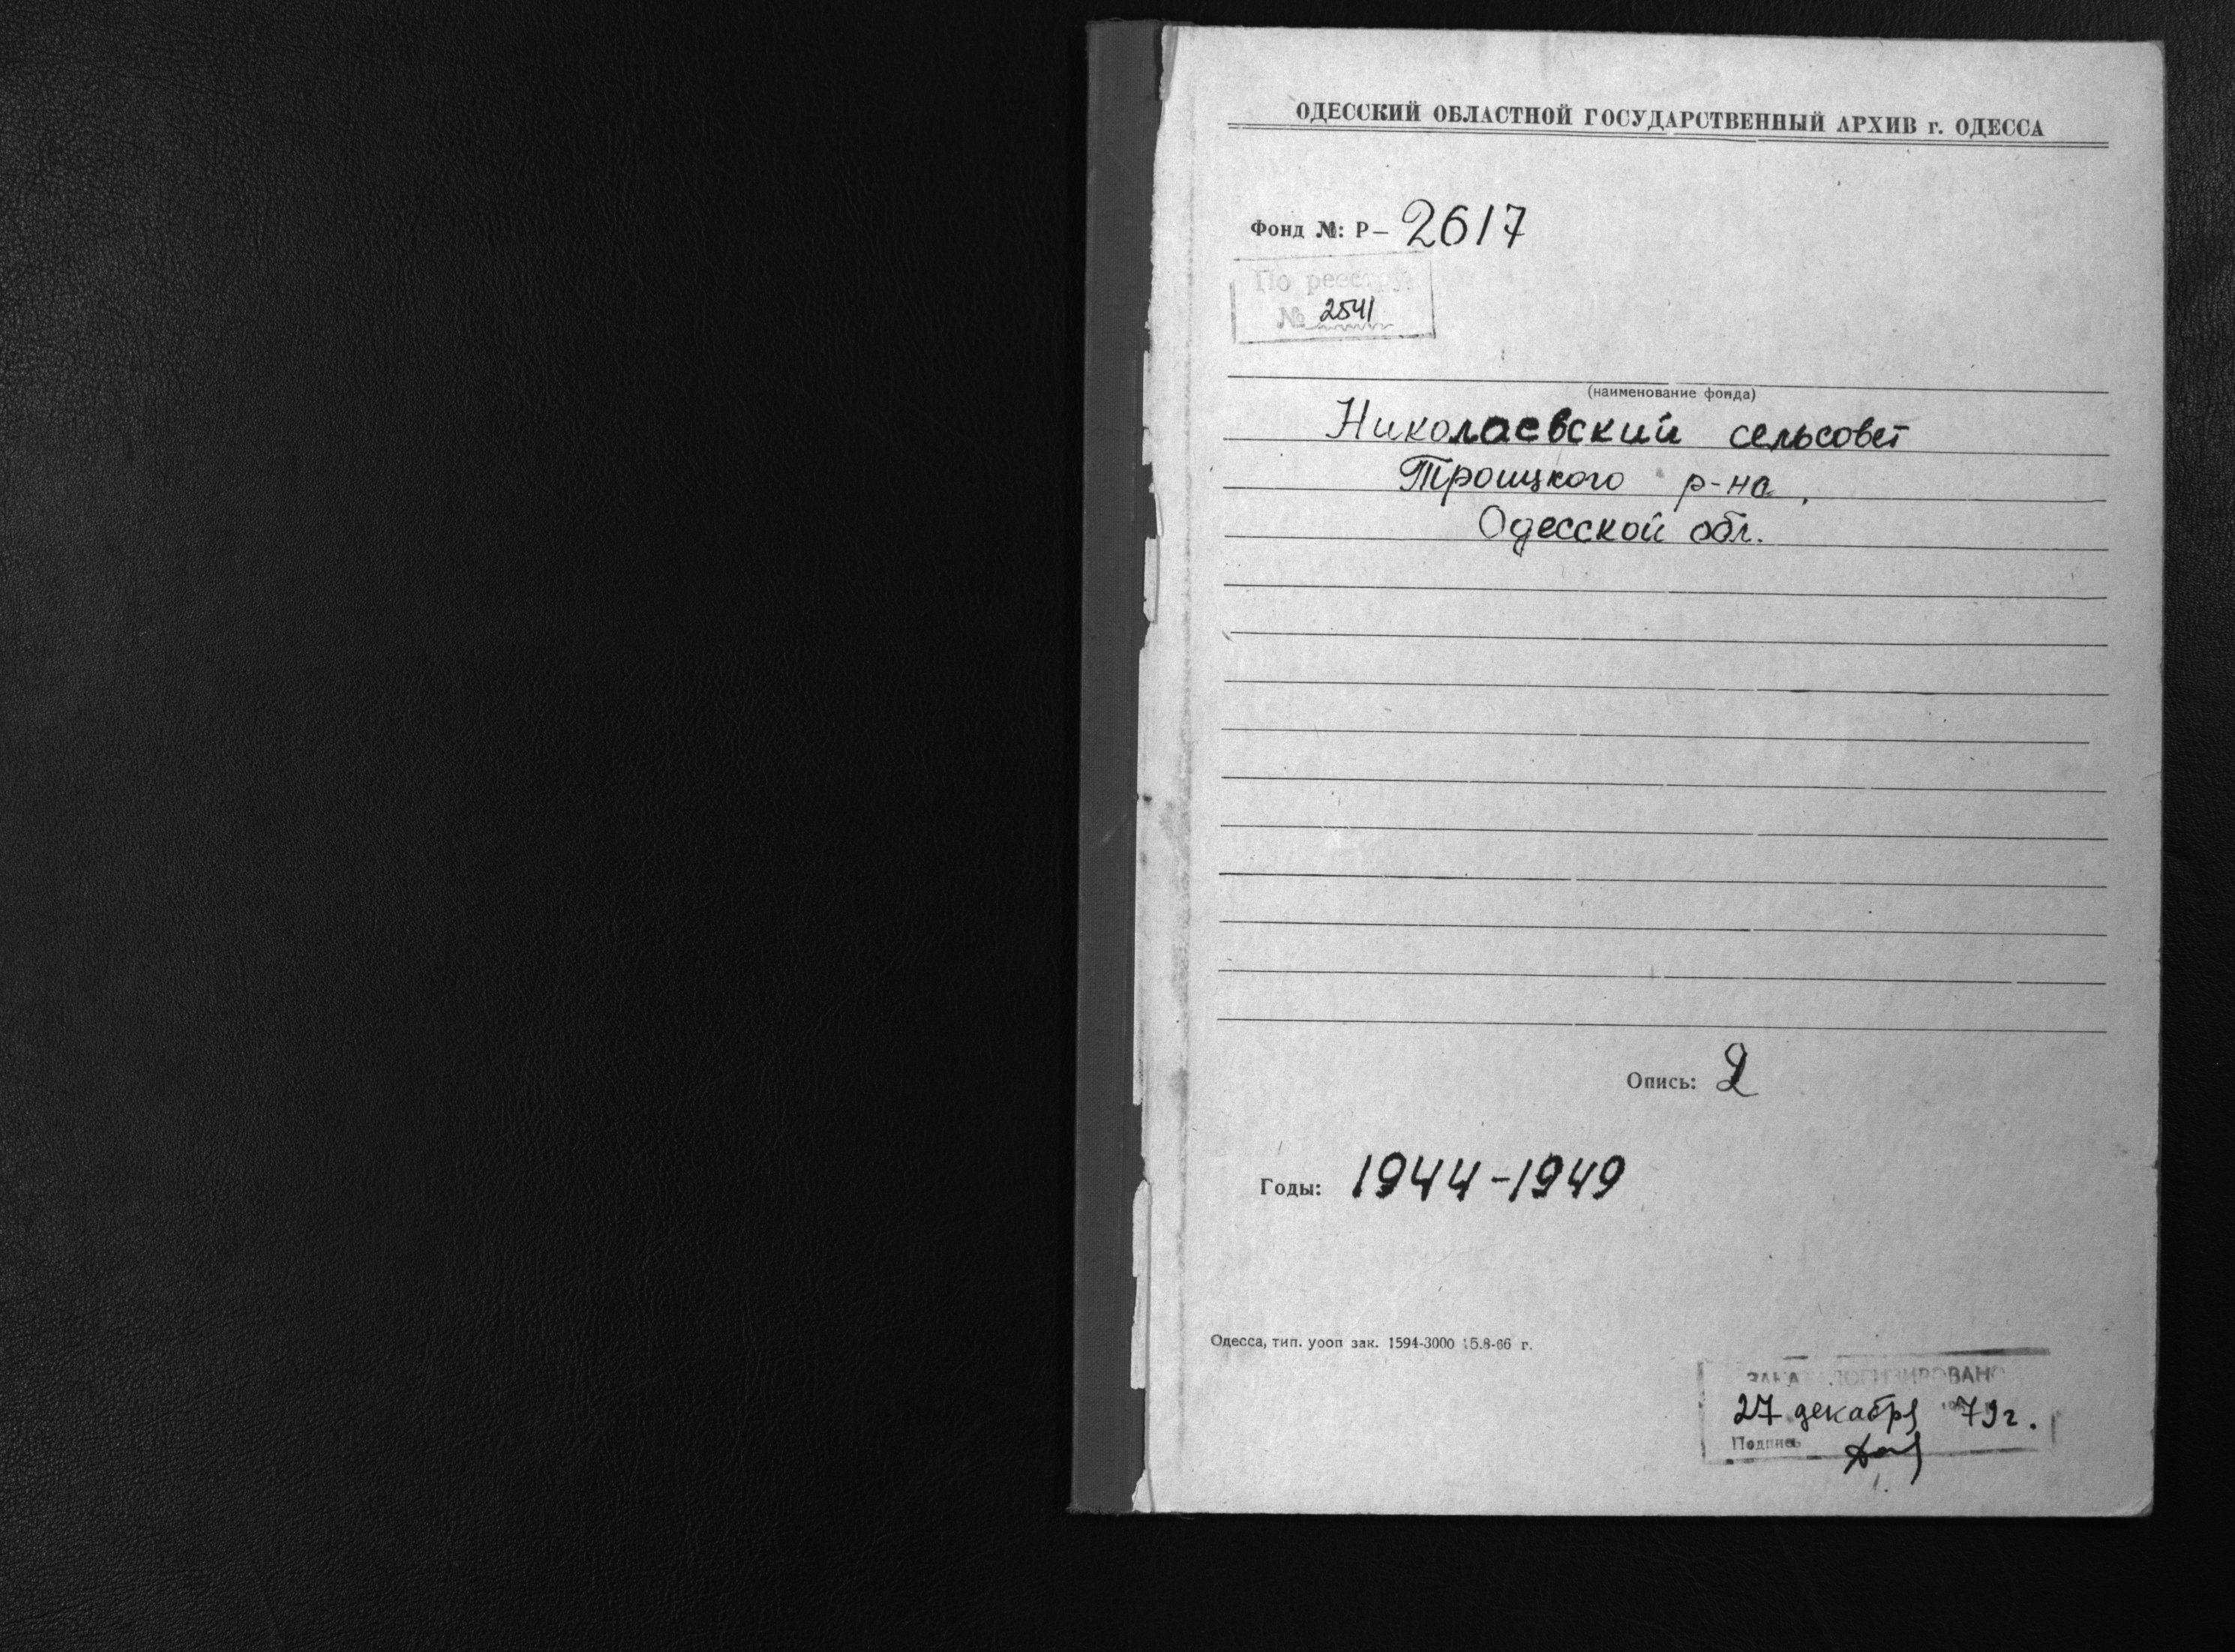 ОДЕССКИЙ ОБЛАСТНОЙ ГОСУДАРСТВЕННЫЙ АРХИВ г. ОДЕССА
Фонд №: Р— 2617
По реестру
№ 2541
(наименование фонда)
Николаевский сельсовет
Троицкого р-на,
Одесской обл.
Опись: 2
Годы: 1944-1949
Одесса, тип. уооп зак. 1594-3000 15.8-66 г.
ЗАКАТАЛОГИЗИРОВАНО
27 декабря 79г.
Подпись